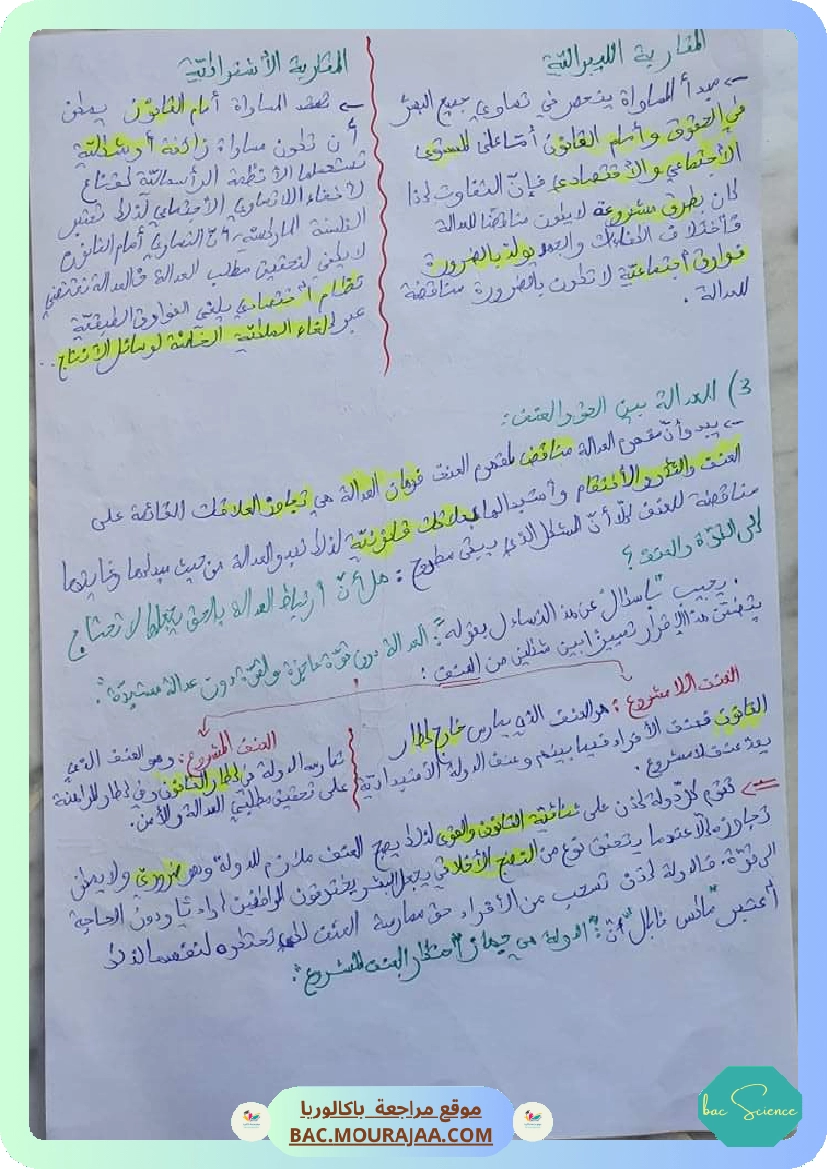 المقاربة الليبرالية
← مبدأ المساواة ينحصر في تساوي جميع البشر
في الحقوق وأمام القانون أمّا على المستوى
الاجتماعي والاقتصادي فإنّ التفاوت إذا
كان بطرق مشروعة لا يكون مناقضا للعدالة
فاختلاف الكفاءات والجهد يولد بالضرورة
فوارق اجتماعية لا تكون بالضرورة مناقضة
للعدالة .
المقاربة الاشتراكية
← تعتقد المساواة أمام القانون يمكن
أن تكون مساواة زائفة أو شكلية
تستعملها الأنظمة الرأسمالية كقناع
لإخفاء اللاتساوي الاجتماعي لذلك تعتبر
الفلسفة الماركسية أنّ التساوي أمام القانون
لا يكفي لتحقيق مطلب العدالة فالعدالة تقتضي
نظام اقتصادي يلغي الفوارق الطبقية
عبر إلغاء الملكية الخاصة لوسائل الإنتاج..
3) العدالة بين الحق والعنف:
← يبدو أنّ مفهوم العدالة مناقض لمفهوم العنف فرهان العدالة هي تجاوز العلاقات القائمة على
العنف والثأر والانتقام واستبدالها بعلاقات قانونية لذلك تبدو العدالة من حيث مبدئها وغايتها
مناقضة للعنف إلّا أنّ المشكل الذي يبقى مطروح: هل أنّ ارتباط العدالة بالحق يجعلها لا تحتاج
إلى القوّة والعنف؟
. يجيب باسكال عن هذا التساؤل بقوله: "العدالة دون قوّة عاجزة والقوّة دون عدالة مستبدّة".
يتضمّن هذا الإقرار تمييزا بين شكلين من العنف:
العنف اللامشروع: هو العنف الذي يمارس خارج إطار
القانون فعنف الأفراد فيما بينهم وعنف الدولة الاستبدادية
يعدّ عنف لامشروع.
العنف المشروع: وهو العنف الذي
تمارسه الدولة في إطار القانون وفي إطار المراهنة
على تحقيق مطلبي العدالة والأمن.
⇐ تقوم كل دولة إذن على ثنائية القانون والقوى لذلك يصبح العنف ملازم للدولة وهو ضروري ولا يمكن
تجاوزه إلّا عندما يتحقق نوع من النضج الأخلاقي يجعل البشر يحترمون القوانين إراديّا ودون الحاجة
إلى قوّة. فالدولة إذن تسحب من الأفراد حق ممارسة العنف لكي تحتكره لنفسها لذلك
أعتبر "ماكس فابر" أنّ: "الدولة هي جهاز احتكار العنف المشروع".
bac Science
موقع مراجعة باكالوريا
BAC.MOURAJAA.COM